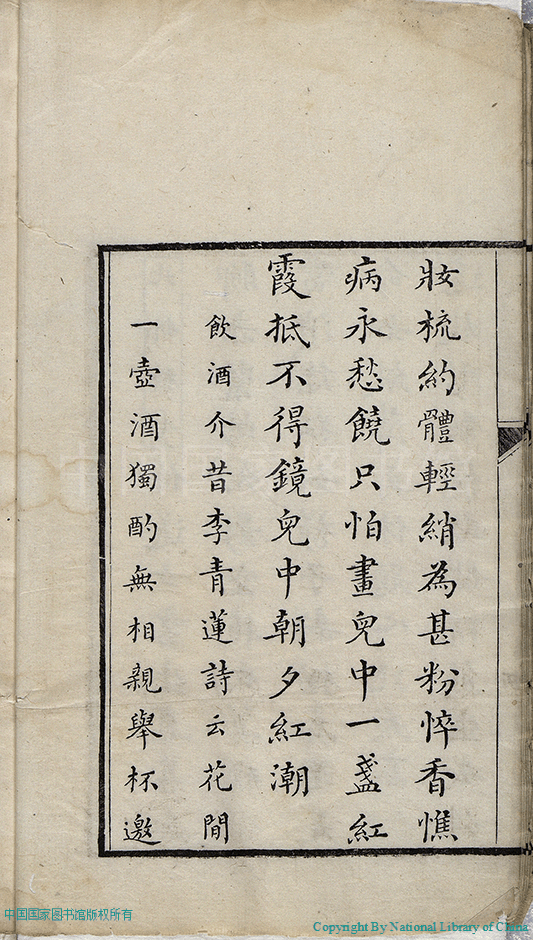 妝梳約體輕綃為甚粉悴香憔
病永愁饒只怕畫兒中一盞紅
霞抵不得鏡兒中朝夕紅潮
飲酒介昔李青蓮詩云花間
一壺酒獨酌無相親舉杯邀
中国国家图书馆版权所有
Copyright By National Library of China